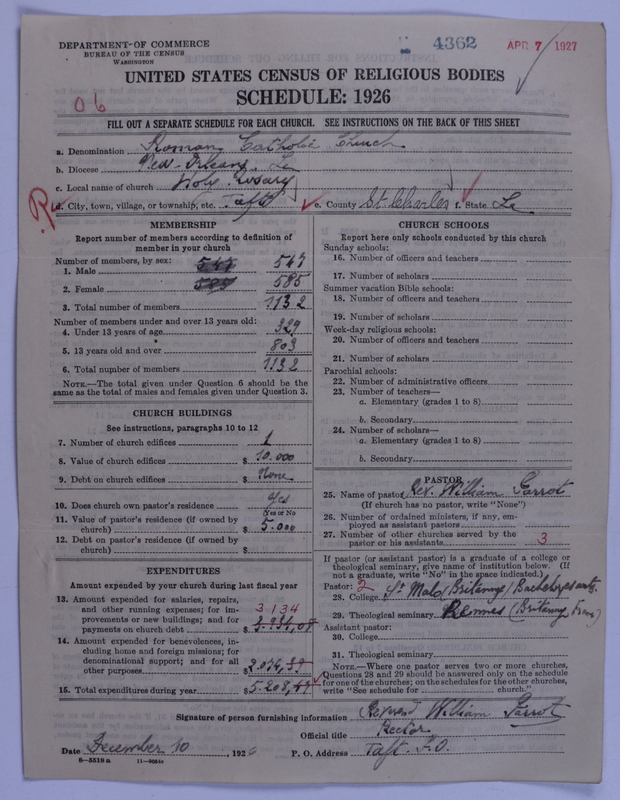 DEPARTMENT OF COMMERCE
BUREAU OF THE CENSUS
WASHINGTON
4362
APR 7 1927
UNITED STATES CENSUS OF RELIGIOUS BODIES
06
SCHEDULE: 1926
FILL OUT A SEPARATE SCHEDULE FOR EACH CHURCH. SEE INSTRUCTIONS ON THE BACK OF THIS SHEET
a. Denomination Roman Catholic Church
b. Diocese New-Orleans, La
c. Local name of church Holy Rosary
d. City, town, village, or township, etc. Taft e. County St. Charles f. State La
MEMBERSHIP
Report number of members according to definition of
member in your church
Number of members, by sex:
1. Male 547 547
2. Female 585 585
3. Total number of members 1132
Number of members under and over 13 years old:
4. Under 13 years of age 329
5. 13 years old and over 803
6. Total number of members 1132
NOTE.—The total given under Question 6 should be the
same as the total of males and females given under Question 3.
CHURCH BUILDINGS
See instructions, paragraphs 10 to 12
7. Number of church edifices 1
8. Value of church edifices $ 10.000
9. Debt on church edifices $ None
10. Does church own pastor's residence Yes
Yes or No
11. Value of pastor's residence (if owned by
church) $ 5.000
12. Debt on pastor's residence (if owned by
church) $
EXPENDITURES
Amount expended by your church during last fiscal year
13. Amount expended for salaries, repairs,
and other running expenses; for im-
provements or new buildings; and for
payments on church debt 3134 $
14. Amount expended for benevolences, in-
cluding home and foreign missions; for
denominational support; and for all
other purposes $ 2.074,39
15. Total expenditures during year $ 5.208,47
CHURCH SCHOOLS
Report here only schools conducted by this church
Sunday schools:
16. Number of officers and teachers
17. Number of scholars
Summer vacation Bible schools:
18. Number of officers and teachers
19. Number of scholars
Week-day religious schools:
20. Number of officers and teachers
21. Number of scholars
Parochial schools:
22. Number of administrative officers
23. Number of teachers—
a. Elementary (grades 1 to 8)
b. Secondary
24. Number of scholars—
a. Elementary (grades 1 to 8)
b. Secondary
PASTOR
25. Name of pastor Rev. William Parrot
(If church has no pastor, write "None")
26. Number of ordained ministers, if any, em-
ployed as assistant pastors
27. Number of other churches served by the
pastor or his assistants 3
If pastor (or assistant pastor) is a graduate of a college or
theological seminary, give name of institution below. (If
not a graduate, write "No" in the space indicated.)
Pastor: 2
28. College St Malo (Britanny)
29. Theological seminary Rennes (Britanny
Assistant pastor:
30. College
31. Theological seminary
NOTE.—Where one pastor serves two or more churches,
Questions 28 and 29 should be answered only on the schedule
for one of the churches; on the schedules for the other churches,
write "See schedule for church."
Signature of person furnishing information William Parrot
Official title Rector
Date December 10, 1926 P. O. Address Taft P.O.
8—5518a 11—